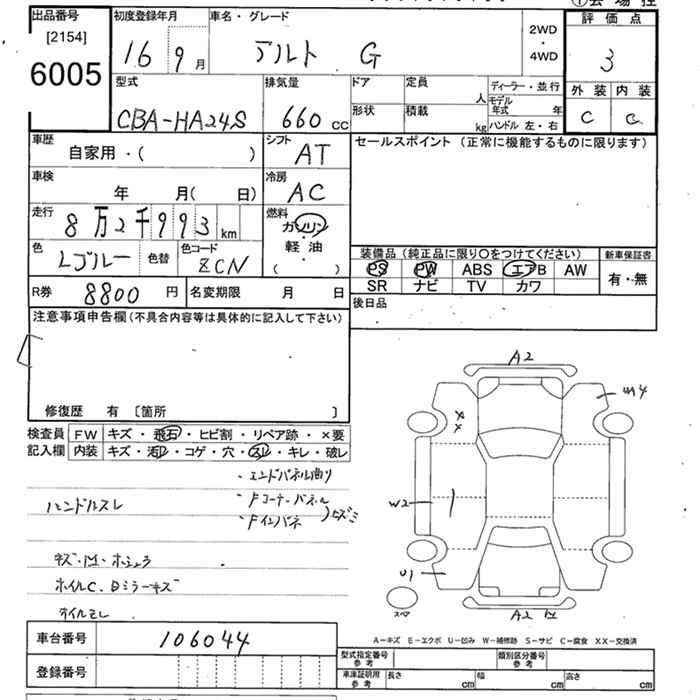 ①会場控
出品番号 初度登録年月 車名・グレード 評価点
[2154]
6005
16 9 月 アルト G 2WD・4WD 3
型式 排気量 ドア 定員 人 ディーラー・並行 外装 内装
CBA-HA24S 660 cc 形状 積載 kg モデル年式 年 ハンドル 左・右 C C
車歴 自家用・( ) シフト AT セールスポイント (正常に機能するものに限ります)
車検 年 月( 日) 冷房 AC
走行 8万2千993 km 燃料 ガソリン・軽油 ( )
色 Lブルー 色替 色コード ZCN
装備品 (純正品に限り○をつけてください) 新車保証書
PS PW ABS エアB AW 有・無
SR ナビ TV カワ
R券 8800 円 名変期限 月 日 後日品
注意事項申告欄 (不具合内容等は具体的に記入して下さい)
修復歴 有 〔箇所 〕
検査員記入欄 FW キズ・飛石・ヒビ割・リペア跡・×要
内装 キズ・汚れ・コゲ・穴・スレ・キレ・破レ
・エンドパネル曲り
ハンドルスレ ・Fコーナーパネル
・Fインパネ
キズ・凹・ホショウ
ホイルC、Bミラーキズ
オイルモレ
A2
W2
U1
A2 凹
スペア
A－キズ E－エクボ U－凹み W－補修跡 S－サビ C－腐食 XX－交換済
車台番号 106044
登録番号
型式指定番号 参考 類別区分番号 参考
車庫証明用 参考 長さ cm 幅 cm 高さ cm